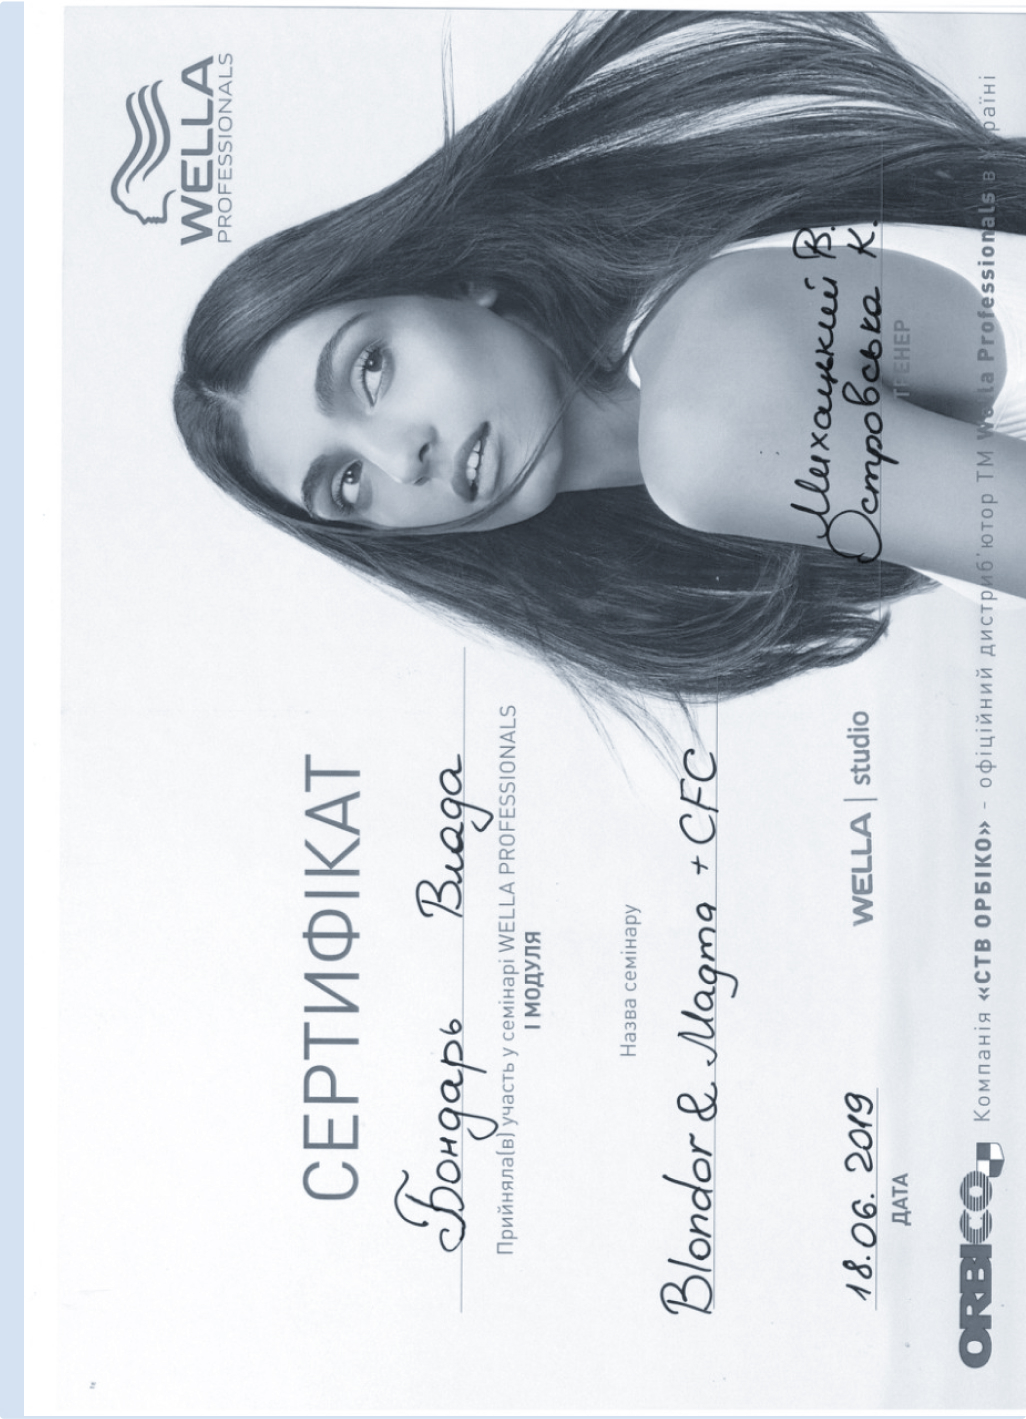 WELLA
PROFESSIONALS
СЕРТИФІКАТ
Бондарь Влада
Прийняла(в) участь у семінарі WELLA PROFESSIONALS
І МОДУЛЯ
Назва семінару
Blondor & Magma + CFC
Михацкий В.
Островська К.
18.06.2019
ДАТА
WELLA | studio
ТРЕНЕР
ORBICO
Компанія «СТВ ОРБІКО» - офіційний дистриб'ютор ТМ Wella Professionals в Україні